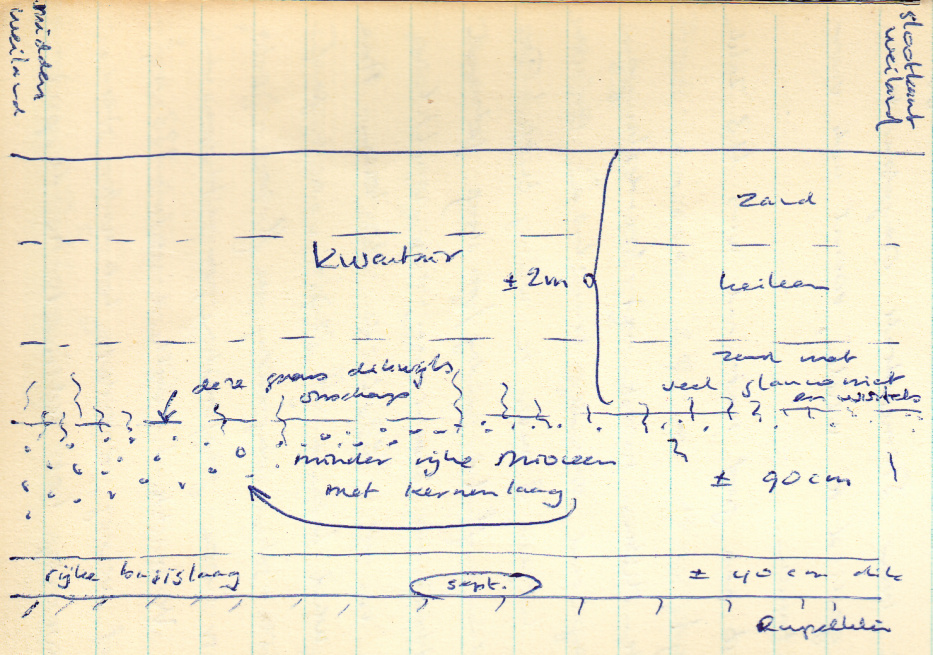 midden
weiland
slootkant
weiland
zand
Kwartair
± 2m
keileem
zand met
veel glauconiet
en wortels
deze grens dikwijls
onscherp
minder rijke Mioceen
met kernenlaag
± 90 cm
rijke basislaag
sept.
± 40 cm dik
Rupelklei